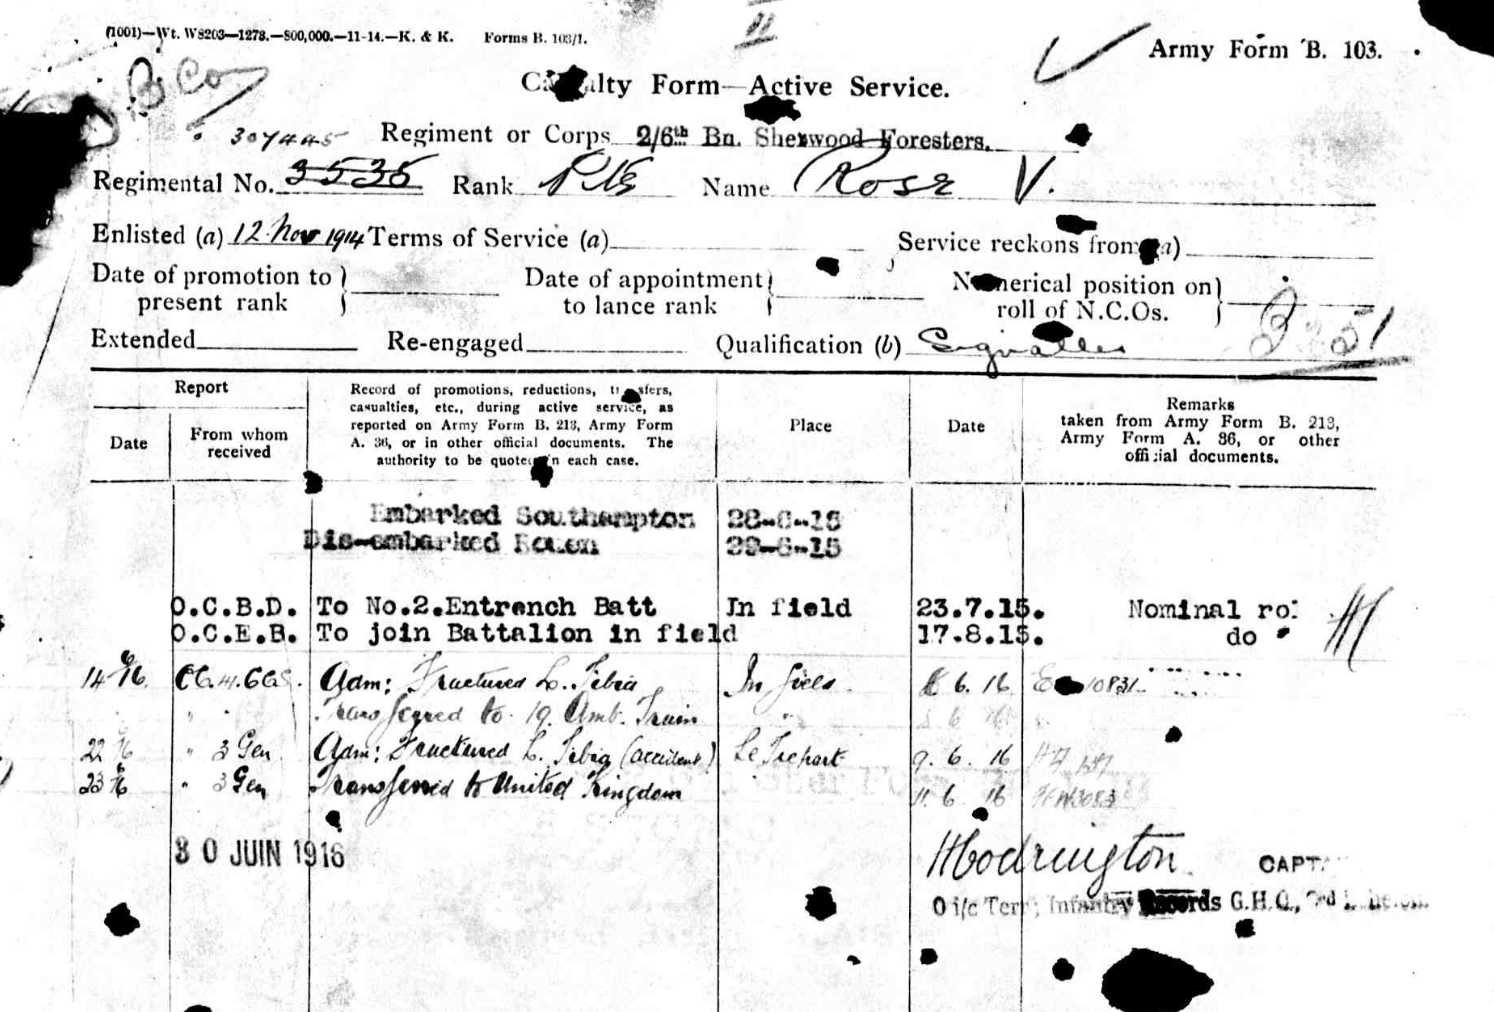 (1001)—Wt. W8203—1278.—800,000.—11-14.—K. & K. Forms B. 103/1.
Army Form B. 103.
B Co
Casualty Form—Active Service.
307445 Regiment or Corps 2/6th Bn. Sherwood Foresters.
Regimental No. 3535 Rank Pte Name Rose V.
Enlisted (a) 12 Nov 1914 Terms of Service (a) Service reckons from (a)
Date of promotion to present rank
Date of appointment to lance rank
Numerical position on roll of N.C.Os.
Extended Re-engaged Qualification (b) Signaller
B 51
Report
Date
From whom received
Record of promotions, reductions, transfers,
casualties, etc., during active service, as
reported on Army Form B. 213, Army Form
A. 36, or in other official documents. The
authority to be quoted in each case.
Place
Date
Remarks
taken from Army Form B. 213,
Army Form A. 36, or other
official documents.
Embarked Southampton 28-6-15
Dis-embarked Rouen 29-6-15
O.C.B.D. To No.2.Entrench Batt In field 23.7.15. Nominal rol
O.C.E.B. To join Battalion in field 17.8.15. do "
Adm: Fractured L. Tibia In field 6. 16
Transferred to 19 Amb. Train
" 3 Gen Adm: Fractured L. Tibia (accident) Le Treport 9. 6. 16
" 3 Gen Transferred to United Kingdom 11. 6 16
30 JUIN 1916
CAPT.
O i/c Terr; Infantry Records G.H.Q., 3rd